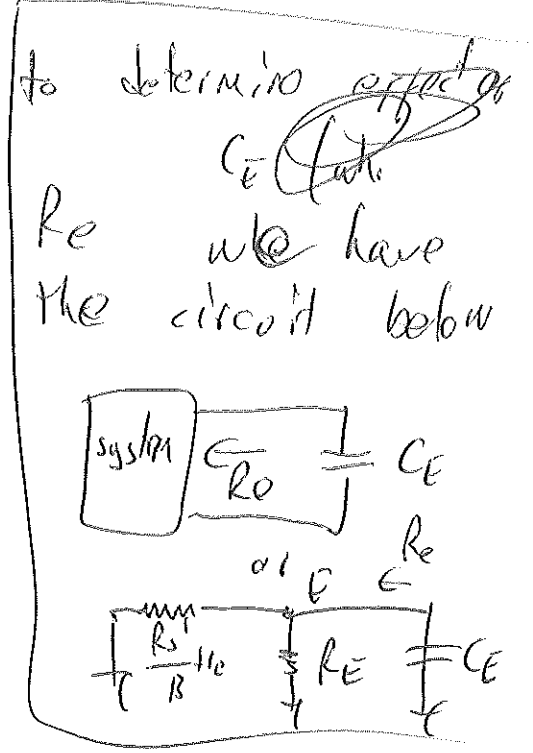 to determine effect of
CE
Re we have
the circuit below
system Re CE
or E Re
Rs'/B +re RE CE